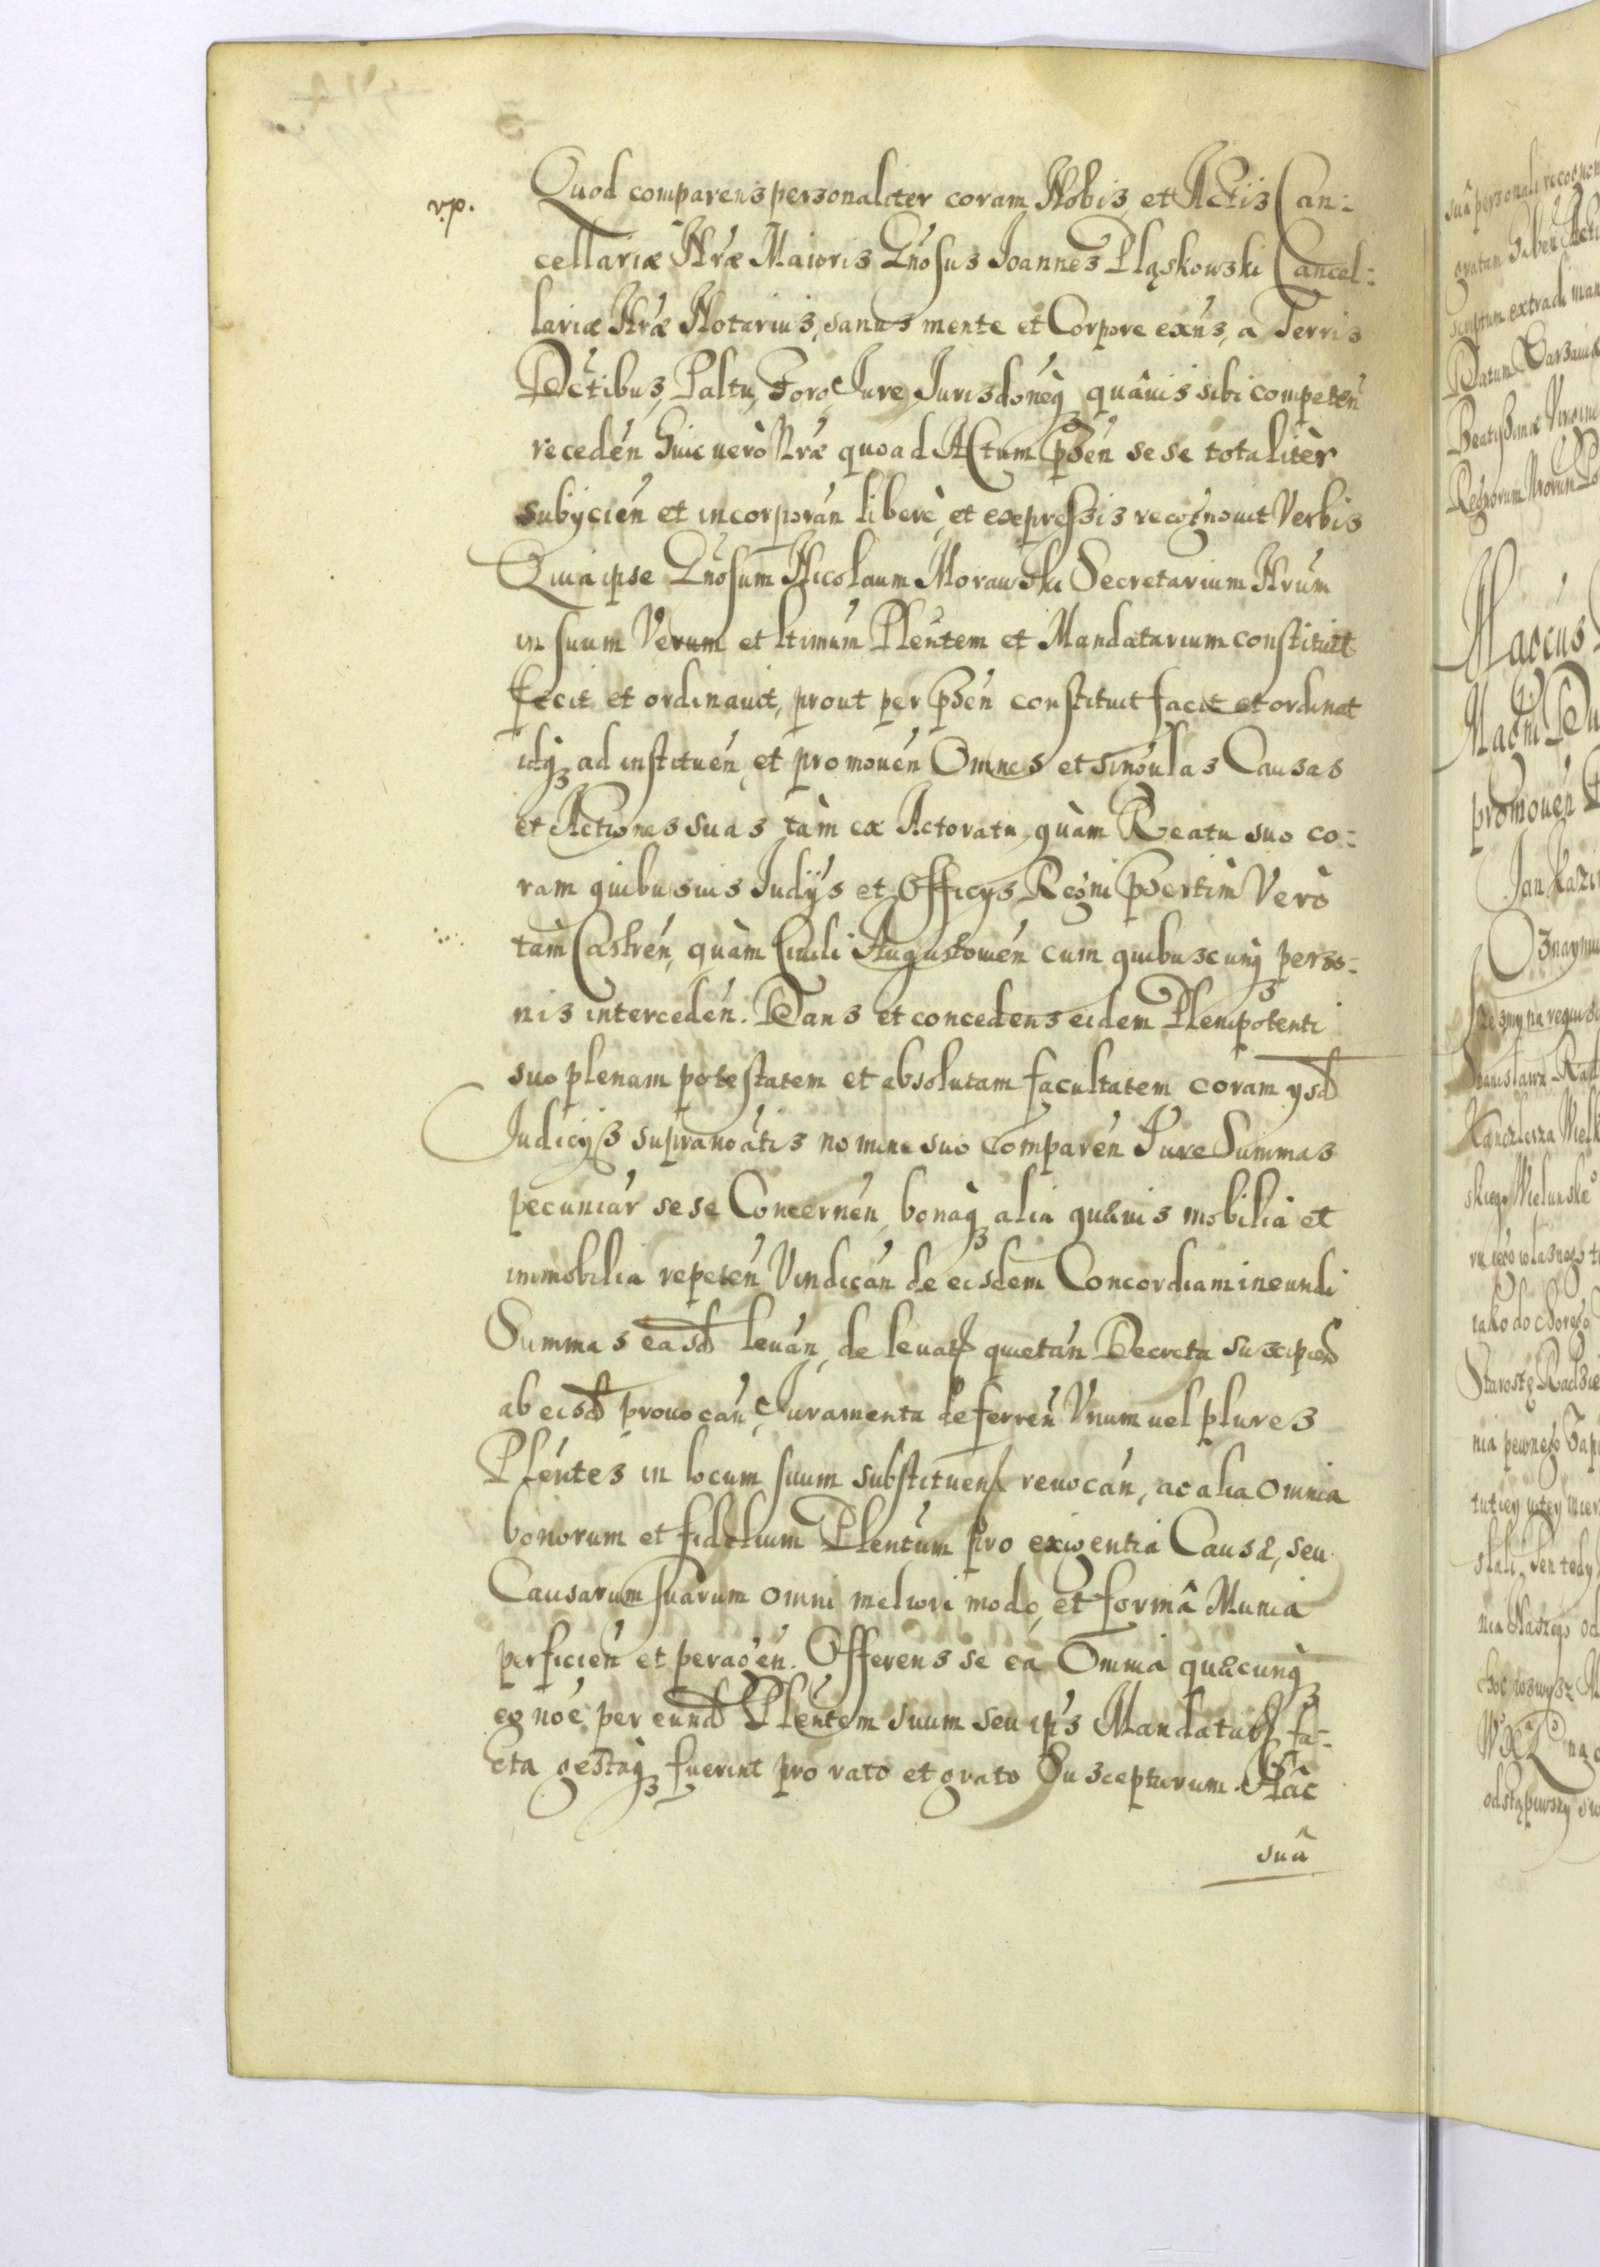 v.p.
Quod comparens personaliter coram Nobis, et Actis Can:
cellariæ Nræ Maioris Gnosus Joannes Pląskowski Cancel:
lariæ Nræ Notarius, sanus mente et Corpore exñs, a Terris
Dctibus, Paltu, Foro, Jure Jurisdoneq quâuis sibi competeñ
recedeñ huic verò Nræ quoad Actum pñseñ sese totalitèr
subÿcieñ et incorporañ liberè, et expressis recognouit Verbis
Quia ipse Gnosum Nicolaum Morawski Secretarium Nrum
in suum Verum et ltimum Plentem et Mandatarium constituit
fecit et ordinauit, prout per pñseñ constituit facit et ordinat
idq ad institueñ, et promoueñ Omnes et singulas Causas
et Actiones suas tàm ex Actoratu, quàm Reatu suo co:
ram quibusuis Judÿs et Officÿs Regni psertim Verò
tàm Castreñ, quàm Ciuili Augustouieñ cum quibuscunq perso:
nis intercedeñ. Dans et concedens eidem Plenipotenti
suo plenam potestatem et absolutam facultatem coram ysd
Judicÿs supranoatis nomine suo compareñ Jure Summas
pecuniar sese Concerneñ, bonaq alia quæuis mobilia et
immobilia repeteñ Vindicañ de eisdem Concordiam ineundi
Summas easd leuañ, de leuatis quietañ Decreta suscipieñd
ab eisd prouocañ, Juramenta deferreñ Vnum uel plures
Plentes in locum suum substitueñ, reuocañ, ac alia omnia
bonorum et fidelium Plentum pro exigentia Causæ, seu
Causarum suarum omni meliori modo, et formâ Munia
perficieñ et perageñ. Offerens se ea Omnia quæcunq
eo noe per eund Plentem suum seu ips Mandatu fa:
cta gestaq fuerint pro rato et grato Suscepturum. Hâc
suâ
suâ personali recognon
gratam
scriptum extradi man
Datum Varsauiæ
Beatissimæ Virginis
Regnorum Nrorum Po
Magni Du
promoueñ
Jan Kazi
Oznaymu
Stanisława
Kanclerza Wielk
skiego Wielunske
iako do chorego
Starostę Radzie
nia pewnego